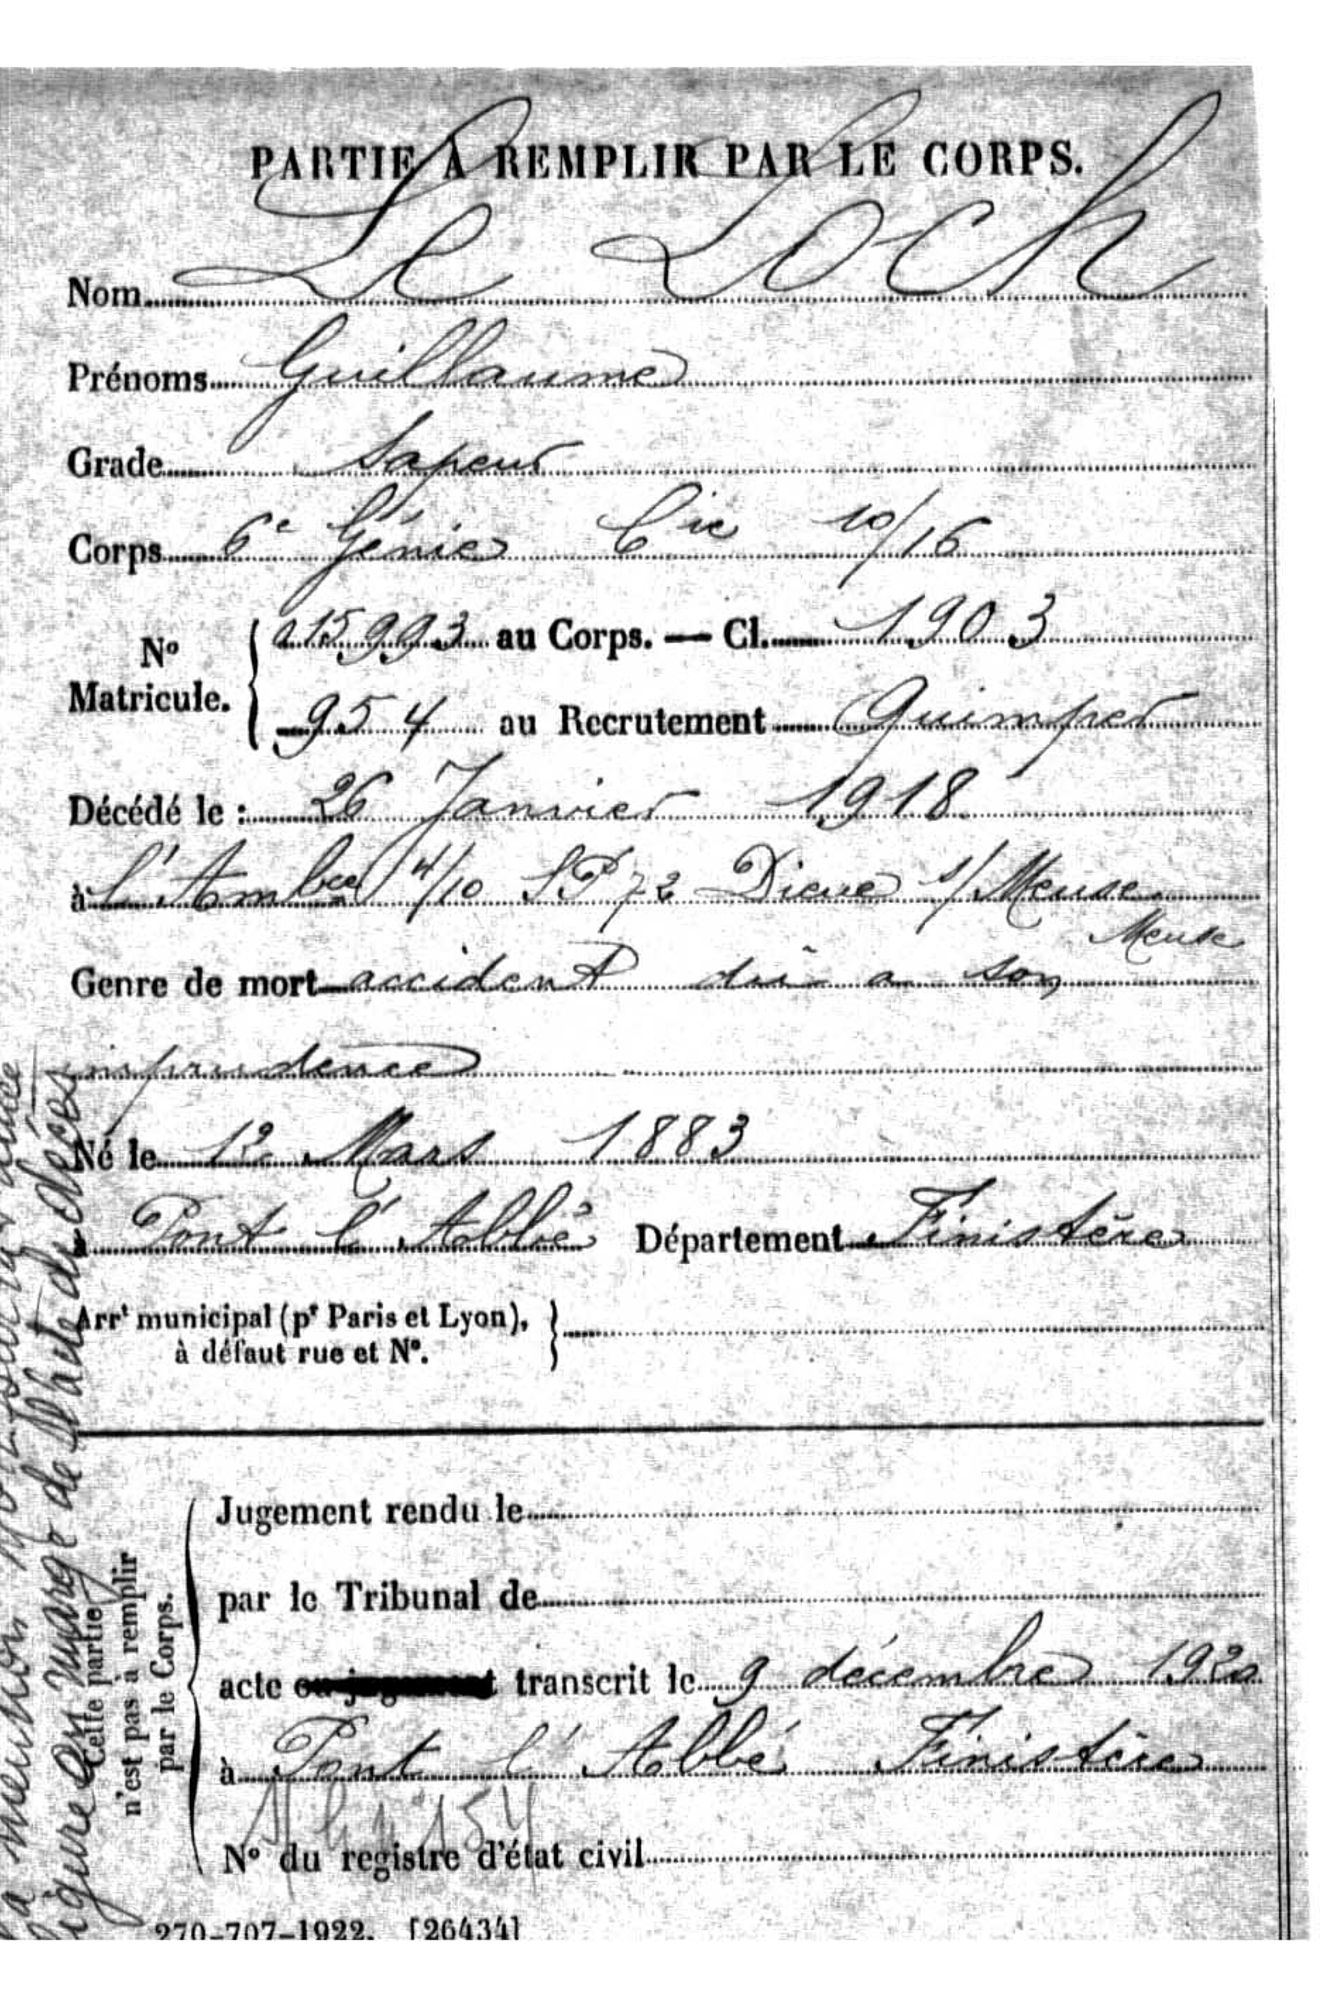 PARTIE À REMPLIR PAR LE CORPS.
Nom Le Loch
Prénoms Guillaume
Grade Sapeur
Corps 6e Génie Cie 10/16
No Matricule. 15993 au Corps. — Cl. 1903
954 au Recrutement Quimper
Décédé le : 26 Janvier 1918
à l'Ambce 4/10 SP 72 Dieue s/ Meuse
Meuse
Genre de mort accident dû a son
imprudence
Né le 12 Mars 1883
à Pont l'Abbé Département Finistère
Arrt municipal (pr Paris et Lyon),
à défaut rue et No.
Jugement rendu le
par le Tribunal de
acte ou jugement transcrit le 9 décembre 1920
à Pont l'Abbé Finistère
No du registre d'état civil
270-707-1922. [26434]
Cette partie
n'est pas à remplir
par le Corps.
la mention Mort
figure en marge de l'acte de décès